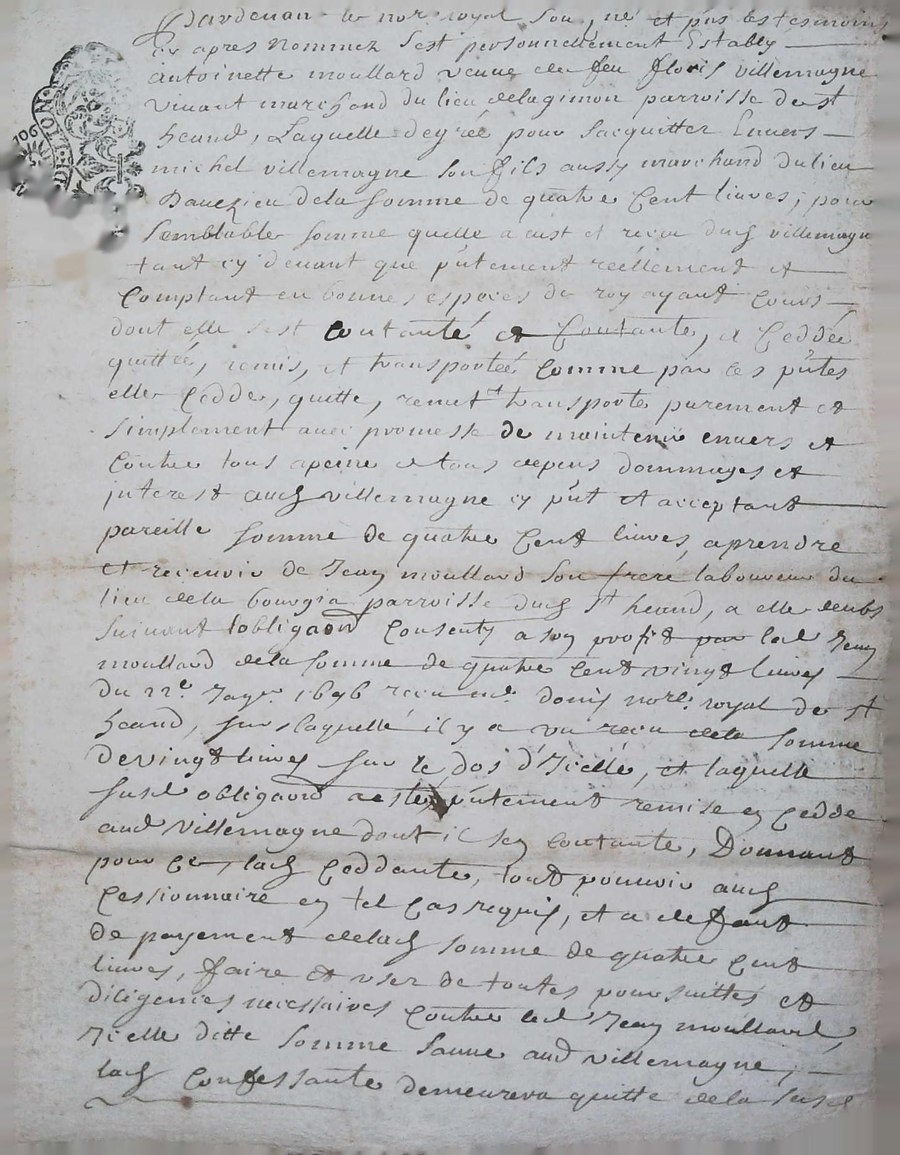 Pardevan le nore royal sou, né et pns les tesmoins
cy apres nommez s'est personnellement Estably
antoinette moullard veuve de feu floris villemagne
vivant marchand du lieu delagimon parroisse de st
heand, Laquelle de gréé pour sacquitter Envers
michel villemagne son fils aussy marchand du lieu
Dauezieu de la somme de quatre Cent liures, pour
semblable somme quelle a eust et receu dud villemagne
tant cy devant que pntement réellement et
Comptant en bonnes especes du roy ayant Cours
dont elle s'est contanté et Contante, a Ceddéé
quittéé, remis, et transportéé Comme par ces pntes
elle Cedde, quitte, remet transporte purement et
simplement avec promesse de maintenir envers et
Contre tous apeine de tous depens dommages et
interest aud villemagne cy pnt et acceptant
pareille somme de quatre Cent liures, aprendre
et recevoir de Jean moullard son frere laboureur du
lieu de la bourgia parroisse dud st heand, a elle deubs
suivant lobligaon Consenty a son profit par led Jean
moullard dela somme de quatre Cent vingt liures
du 22e Janer 1696 receu me donis nore royal de st
heand, sur laquelle il y a un receu dela somme
de vingt liures sur le dos d'Icelle, et laquelle
susd obligaon a este pntement remise en cedde
aud villemagne dont il sen contante, Donnant
pour Ce lad Ceddante, tout pouvoir aud
Cessionnaire en tel cas requis, et a deffaut
de payement delad somme de quatre Cent
liures, faire et user de toutes poursuittes et
diligences necessaires Contre led Jean moullard,
Icelle ditte somme sauve aud villemagne,
lad Confessante demeurera quitte de la susd
106
DE LYON